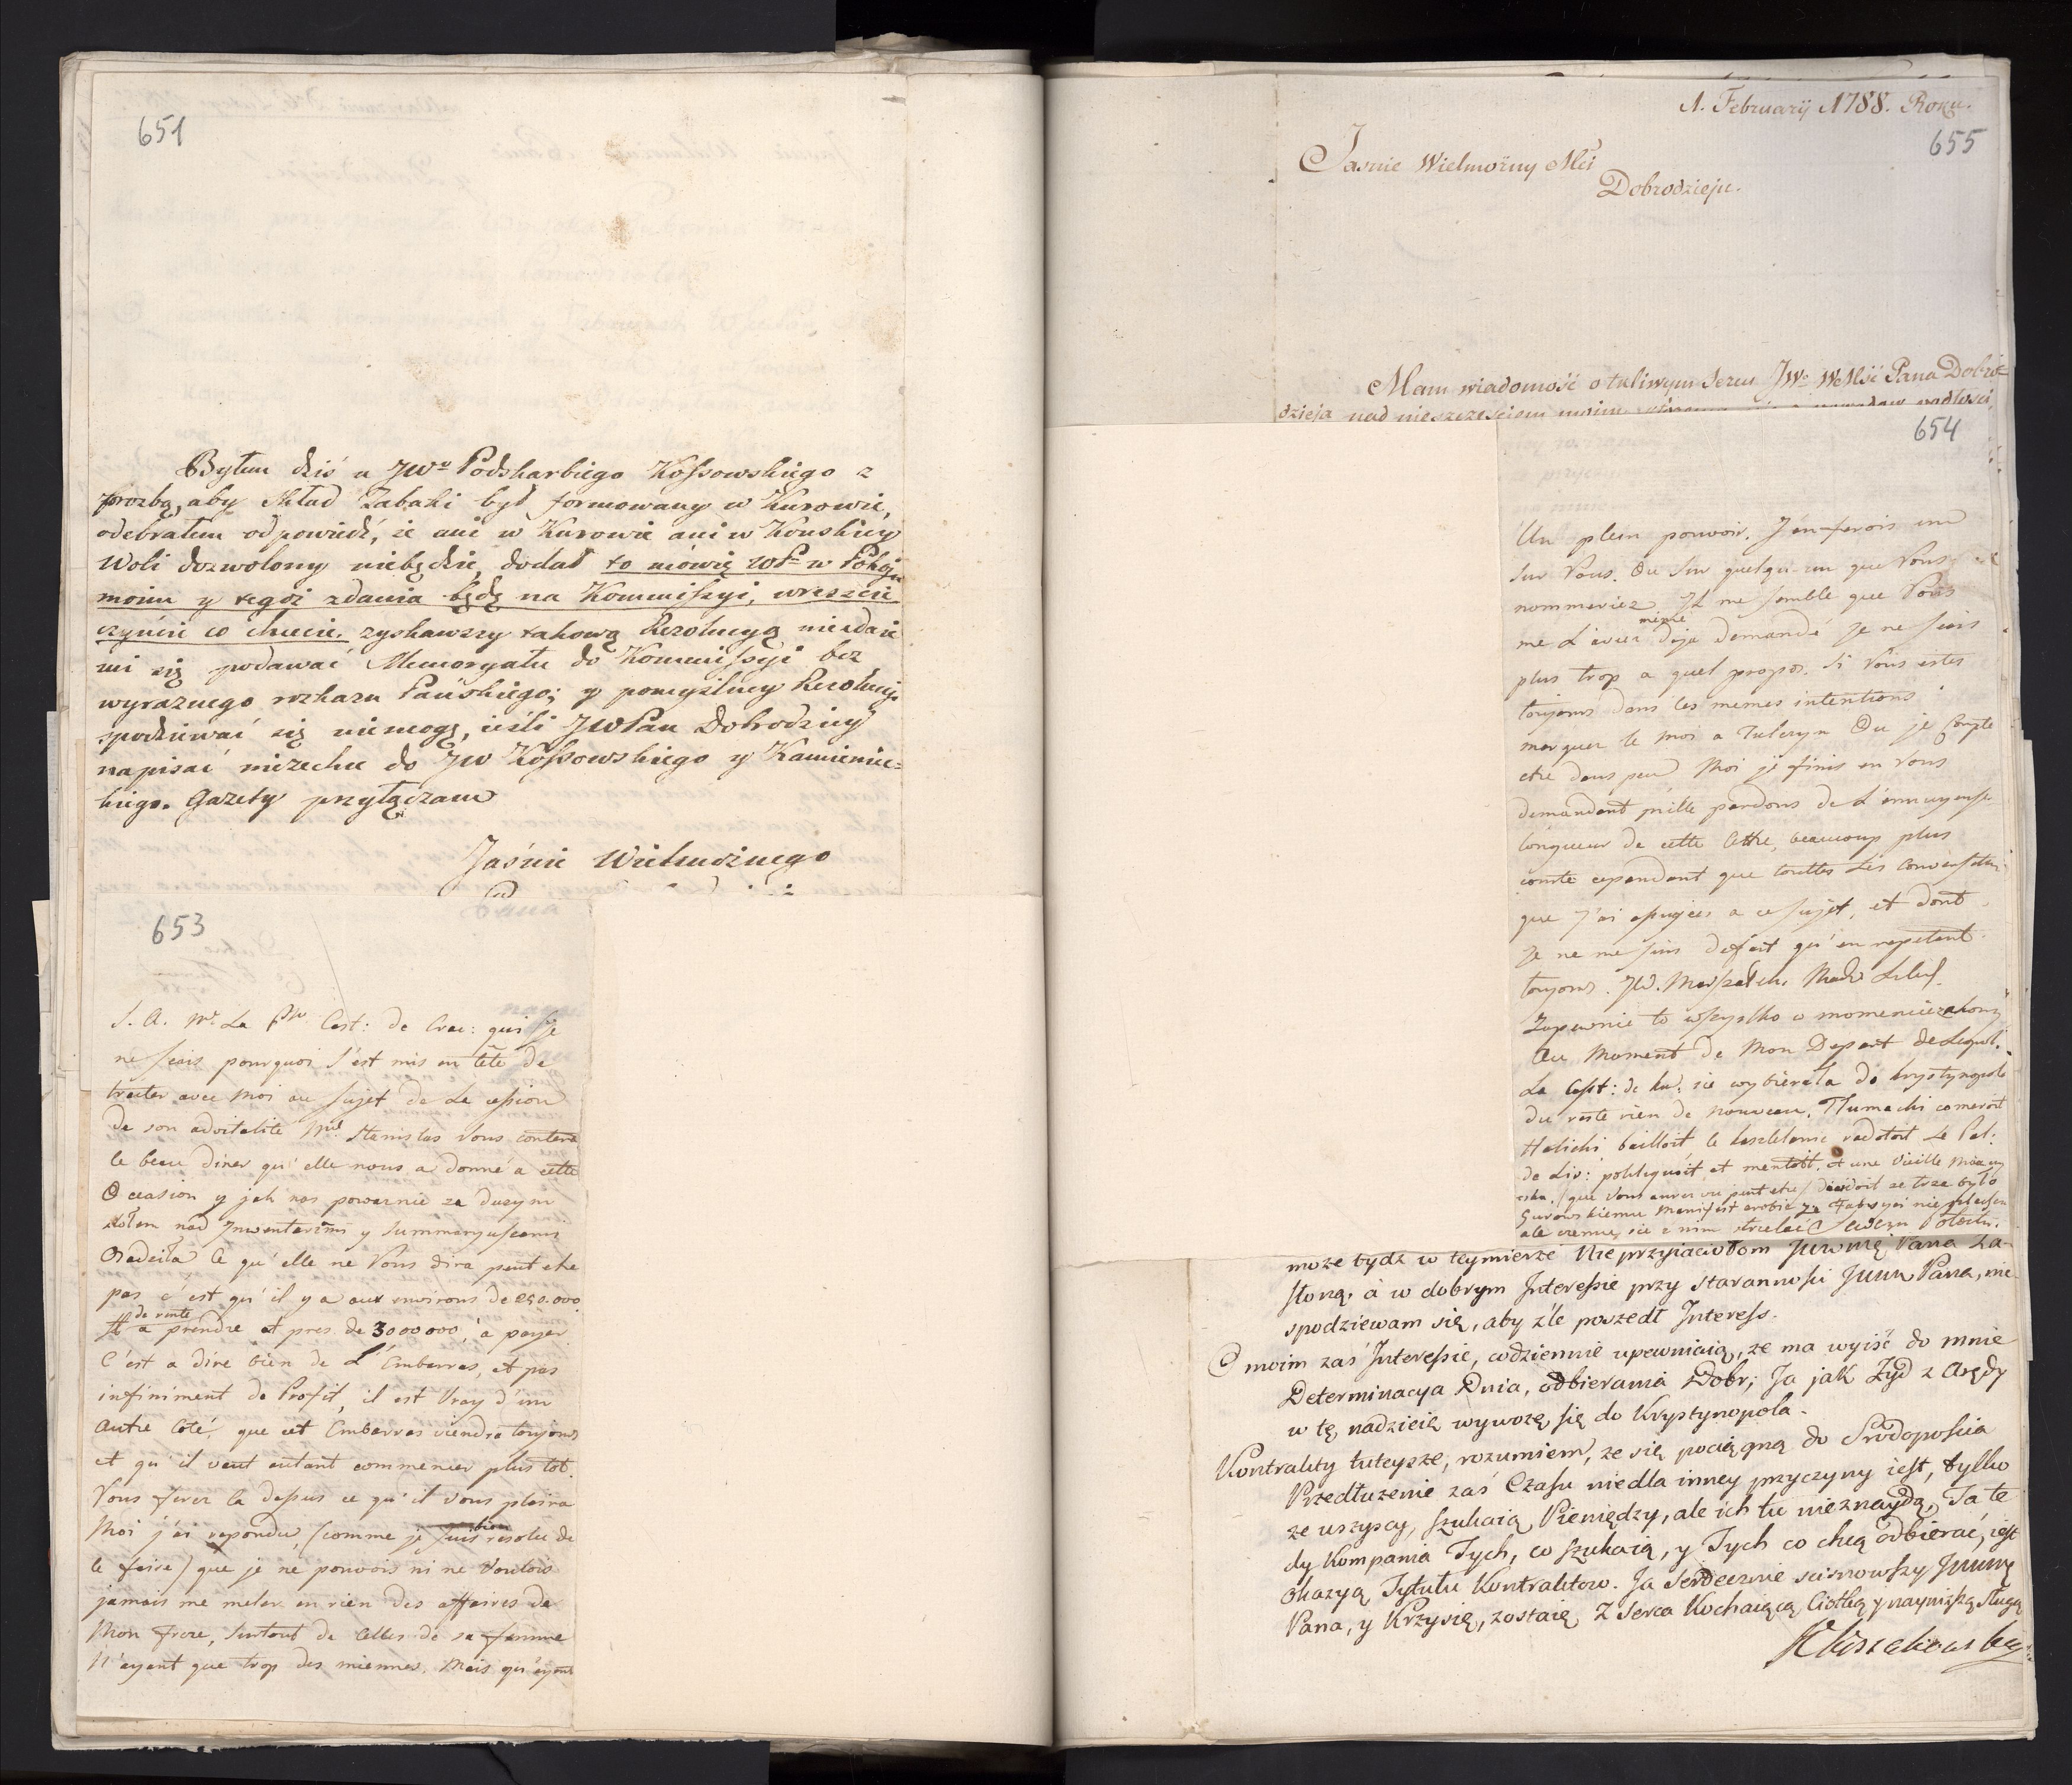 651
Byłem dziś u JWo Podskarbiego Kossowskiego z
prozbą, aby skład Tabaki był formowany w Kurowie,
odebrałem odpowiedź, że ani w Kurowie ani w Konskiey
Woli dozwolony niebędzie, dodał to mówię WPu w Pokoju
moim y tegoż zdania będę na Kommissyi, wreszcie
czyńcie co chcecie. zyskawszy takową Rezolucyą niezdaie
mi się podawać Memoryału do Kommissyi bez
wyraznego rozkazu Pańskiego; y pomyślney Rezolucyi
spodziewać się niemogę, ieśli JWPan Dobrodziey
napisać niezechce do JW Kossowskiego y Kamieniec=
kiego. Gazety przyłączam
Jaśnie Wielmożnego
653
S. A. Me La Psse Cast: de Crac: qui je
ne scais pourquoi s'est mis en tête de
traiter avec Moi au sujet de La cession
de son advitalité Md Stanislas Vous contera
le beau diner qu'elle nous a donné a cette
Occasion y jak nas powaznie za duzym
stołem nad Inwentarzmi y Summaryuszami
Osadziła Ce qu'elle ne Vous dira peut etre
pas c'est qu'il y a aux environs de 250.000
de rente
a prendre et pres de 3000000, a payer
C'est a dire bien de L'Embarras, et pas
infiniment de Profit, il est Vray d'un
Autre Coté, que cet Embarras viendra toujours
et qu'il vaut autant commencer plus tot.
Vous ferez la dessus ce qu'il vous plaira
Moi j'ai repondu, (comme je suis bien resolu de
le faire) que je ne pouvois ni ne Voulois
jamais me meler en rien des affaires de
Mon frere, surtout de Celles de sa femme
N'ayant que trop des miennes. Mais qu'ayant
1. February 1788. Roku.
655
Jasnie Wielmożny Mci
Dobrodzieju.
Mam wiadomość o tuliwym Sercu JWo WMść Pana Dobro=
dzieja nad nieszczesciem moim
654
Un plein pouvoir. J'en ferois un
sur Vous. Ou sur quelqu-un que Vous
nommeriez Il me semble que Vous
me L'aviez même deja demandé je ne scais
plus trop a quel propos. Si Vous estes
toujours dans les memes intentions
marquez le moi a Tulczyn Ou je Compte
etre dans peu Moi je finis en Vous
demandant mille pardons de L'ennuyeuse
longueur de cette lettre, beaucoup plus
courte cependant que touttes les Conversations
que j'ai essuyées a ce sujet, et dont
Je ne me suis defait qu'en repetant
toujours. JW. Marszałek Nadw Lit
Zapewnie to wszystko w momencie
Au Moment de Mon Depart
La Cast: de sie wybierała do Krystynopola
Du reste rien de nouveau. Tłumacki
Halicki bailloit le radotoit Le Pal:
de Liv: politiquoit et mentoit, et une Vieille
(que Vous aurez vu peut etre) disoit ze trzeba było
Gurowskiemu Manifest zrobic
ale z nim strzelać
moze bydz w teymierze Nieprzyiaciołom
słoną, a w dobrym Interessie przy starannosci Jmm Pana, nie
spodziewam się, aby zle poszedł Interess.
O moim zas Interessie, codziennie upewniaią, ze ma wyiść do mnie
Determinacya Dnia, odbierania Dobr; Ja jak Zyd z Arędy
w tę nadzieię wywozę się do Krystynopola.
Kontrakty tuteysze, rozumiem, ze się pociągną do Srodoposcia
Przedłuzenie zas Czasu niedla inney przyczyny iest, tylko
ze wszyscy, szukaią Pieniędzy, ale ich tu nieznaydą, Ta te
dy Kompania Tych, co szukaią, y Tych co chcą odbierać, iest
okazyą Tytułu Kontraktow. Ja Serdecznie scisnowszy Jmmę
Pana, y Krzysię, zostaię z Serca Kochaiącą Ciotką y naynizszą sługą